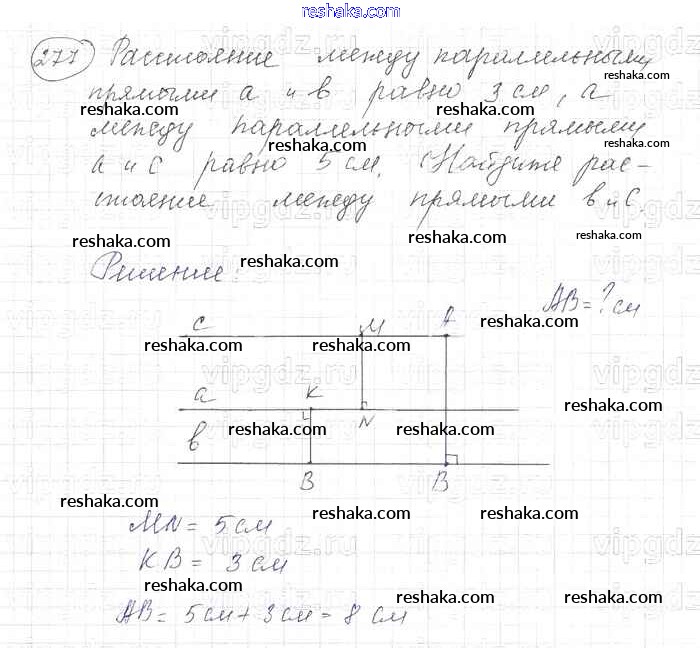 reshaka.com
277 Расстояние между параллельными
reshaka.com
прямыми а и в равно 3 см, а
reshaka.com reshaka.com reshaka.com
между параллельными прямыми
а и с равно 5 см. Найдите рас-
reshaka.com reshaka.com
стояние между прямыми в и с.
reshaka.com reshaka.com
Решение:
reshaka.com
AB = ? см
reshaka.com
с M A
reshaka.com reshaka.com
а K
reshaka.com
N
reshaka.com reshaka.com
в
B B
reshaka.com
MN = 5 см
reshaka.com reshaka.com
KB = 3 см
reshaka.com reshaka.com
AB = 5 см + 3 см = 8 см